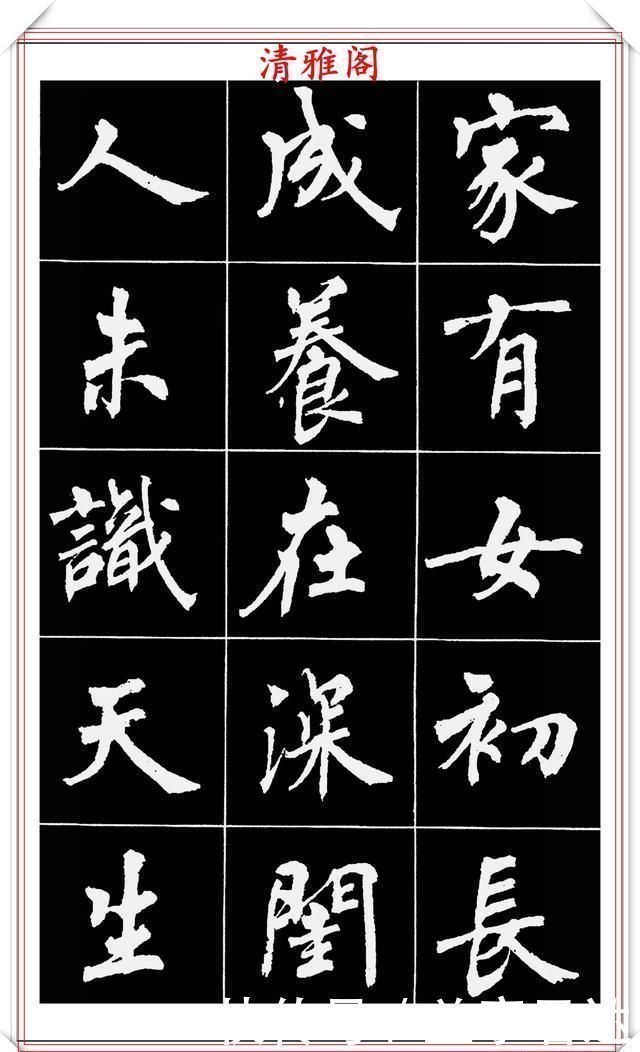 清雅阁
家有女初長
成養在深閨
人未識天生